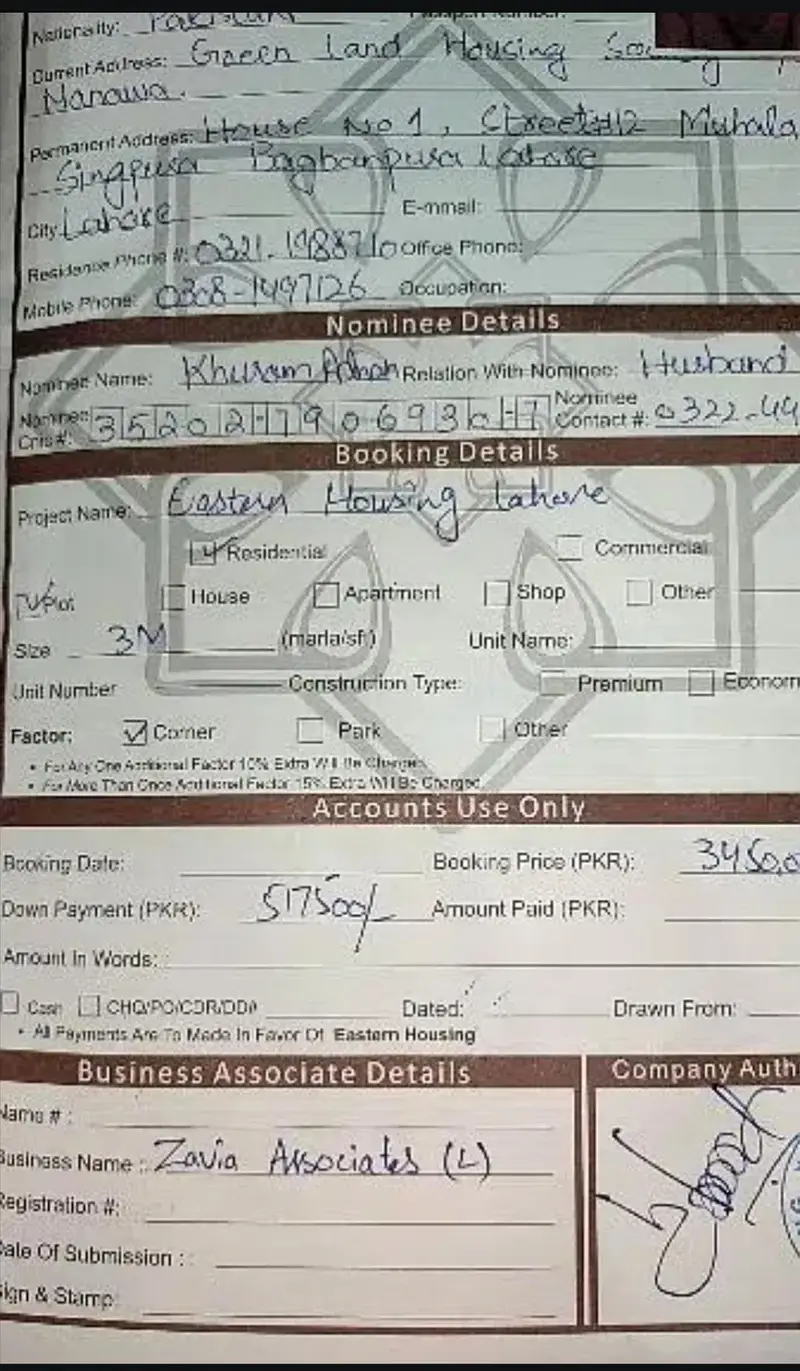 Nationality: Pakistani Passport Number:
Current Address: Green Land Housing
Manawa.
Permanent Address: House No 1, Street#12 Muhala
Singpura Bagbanpura Lahore
City: Lahore E-mmail:
Residence Phone #: 0321-1988710 Office Phone:
Mobile Phone: 0308-1497126 Occupation:
Nominee Details
Nominee Name: Khuram Relation With Nominee: Husband
Nominee Cnis#: 35202-7906930-7 Nominee Contact #: 0322-44
Booking Details
Project Name: Eastern Housing Lahore
Residential Commercial
Plot House Apartment Shop Other
Size 3M (marla/sft) Unit Name:
Unit Number Construction Type: Premium Econom
Factor: Corner Park Other
• For Any One Additional Factor 10% Extra Will Be Charged.
• For More Than Once Additional Factor 15% Extra Will Be Charged.
Accounts Use Only
Booking Date: Booking Price (PKR): 3450,0
Down Payment (PKR): 517500/- Amount Paid (PKR):
Amount In Words:
Cash CHQ/PO/CDR/DD# Dated: Drawn From:
• All Payments Are To Made In Favor Of Eastern Housing
Business Associate Details Company Auth
Name # :
Business Name : Zavia Associates (L)
Registration #:
Date Of Submission :
Sign & Stamp: